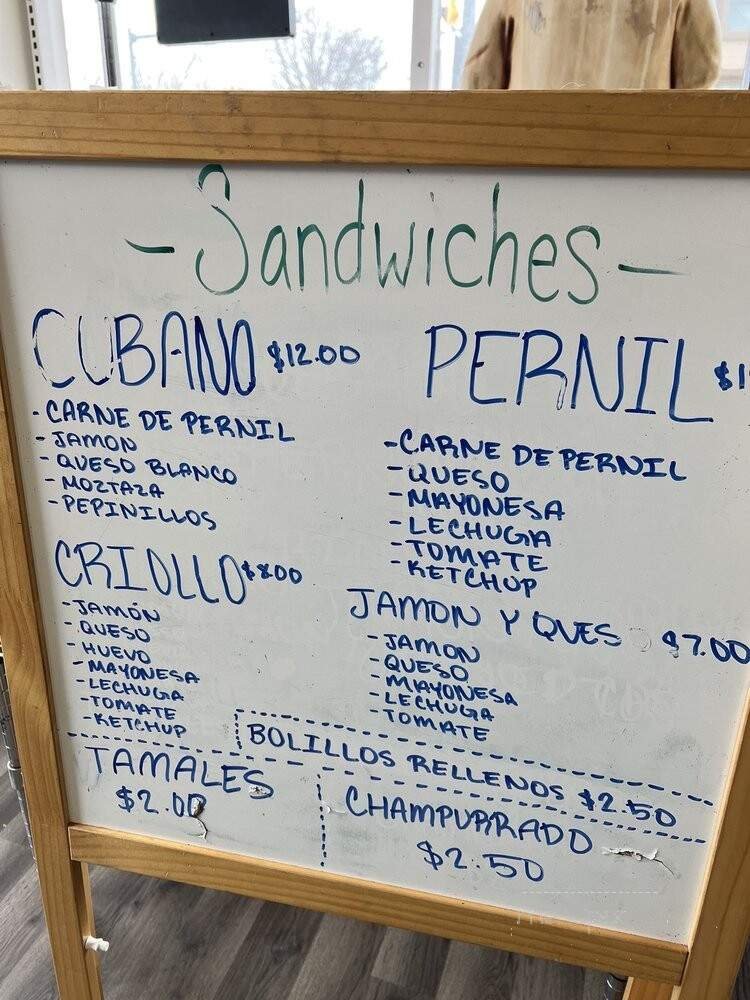 - Sandwiches -
CUBANO $12.00
- CARNE DE PERNIL
- JAMON
- QUESO BLANCO
- MOZTAZA
- PEPINILLOS
PERNIL
- CARNE DE PERNIL
- QUESO
- MAYONESA
- LECHUGA
- TOMATE
- KETCHUP
CRIOLLO $8.00
- JAMÓN
- QUESO
- HUEVO
- MAYONESA
- LECHUGA
- TOMATE
- KETCHUP
JAMON Y QUES $7.00
- JAMON
- QUESO
- MAYONESA
- LECHUGA
- TOMATE
BOLILLOS RELLENOS $2.50
TAMALES
$2.00
CHAMPURRADO
$2.50